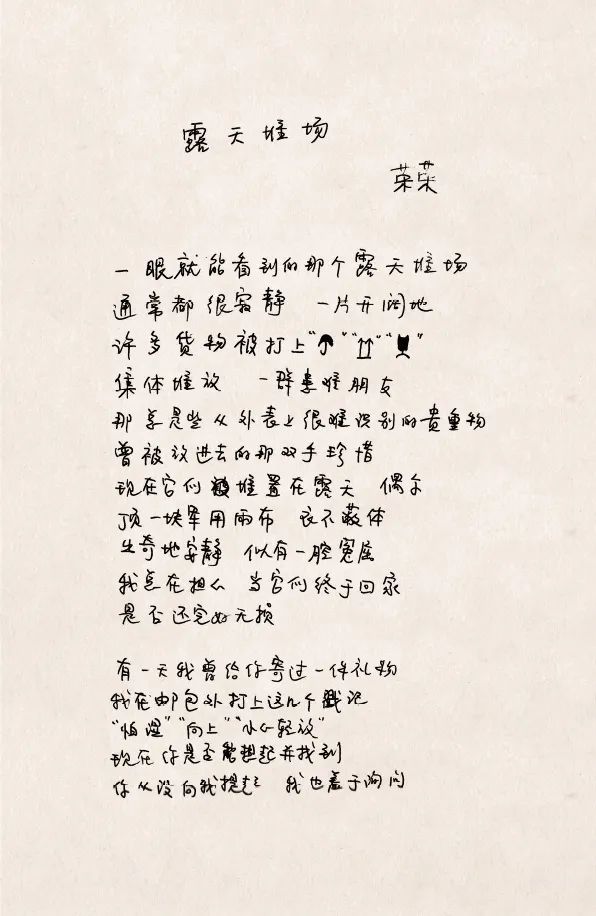 露天堆场
荣荣
一眼就能看到的那个露天堆场
通常都很寂静 一片开阔地
许多货物被打上“☂”“⇈”“🍷”
集体堆放 一群患难朋友
那总是些从外表上很难识别的贵重物
曾被放进去的那双手珍惜
现在它们被堆置在露天 偶尔
顶一块军用雨布 衣不蔽体
出奇地安静 似有一腔冤屈
我总在担心 当它们终于回家
是否还完好无损
有一天我曾给你寄过一件礼物
我在邮包外打上这几个戳记
“怕湿”“向上”“小心轻放”
现在你是否能想起并找到
你从没向我提起 我也羞于询问